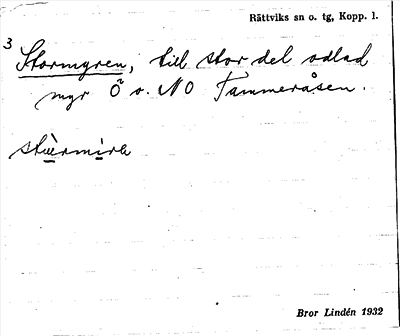 Rättviks sn o. tg, Kopp. l.
3
Stormyren, till stor del odlad
myr Ö o. NO Tammeråsen.
Bror Lindén 1932